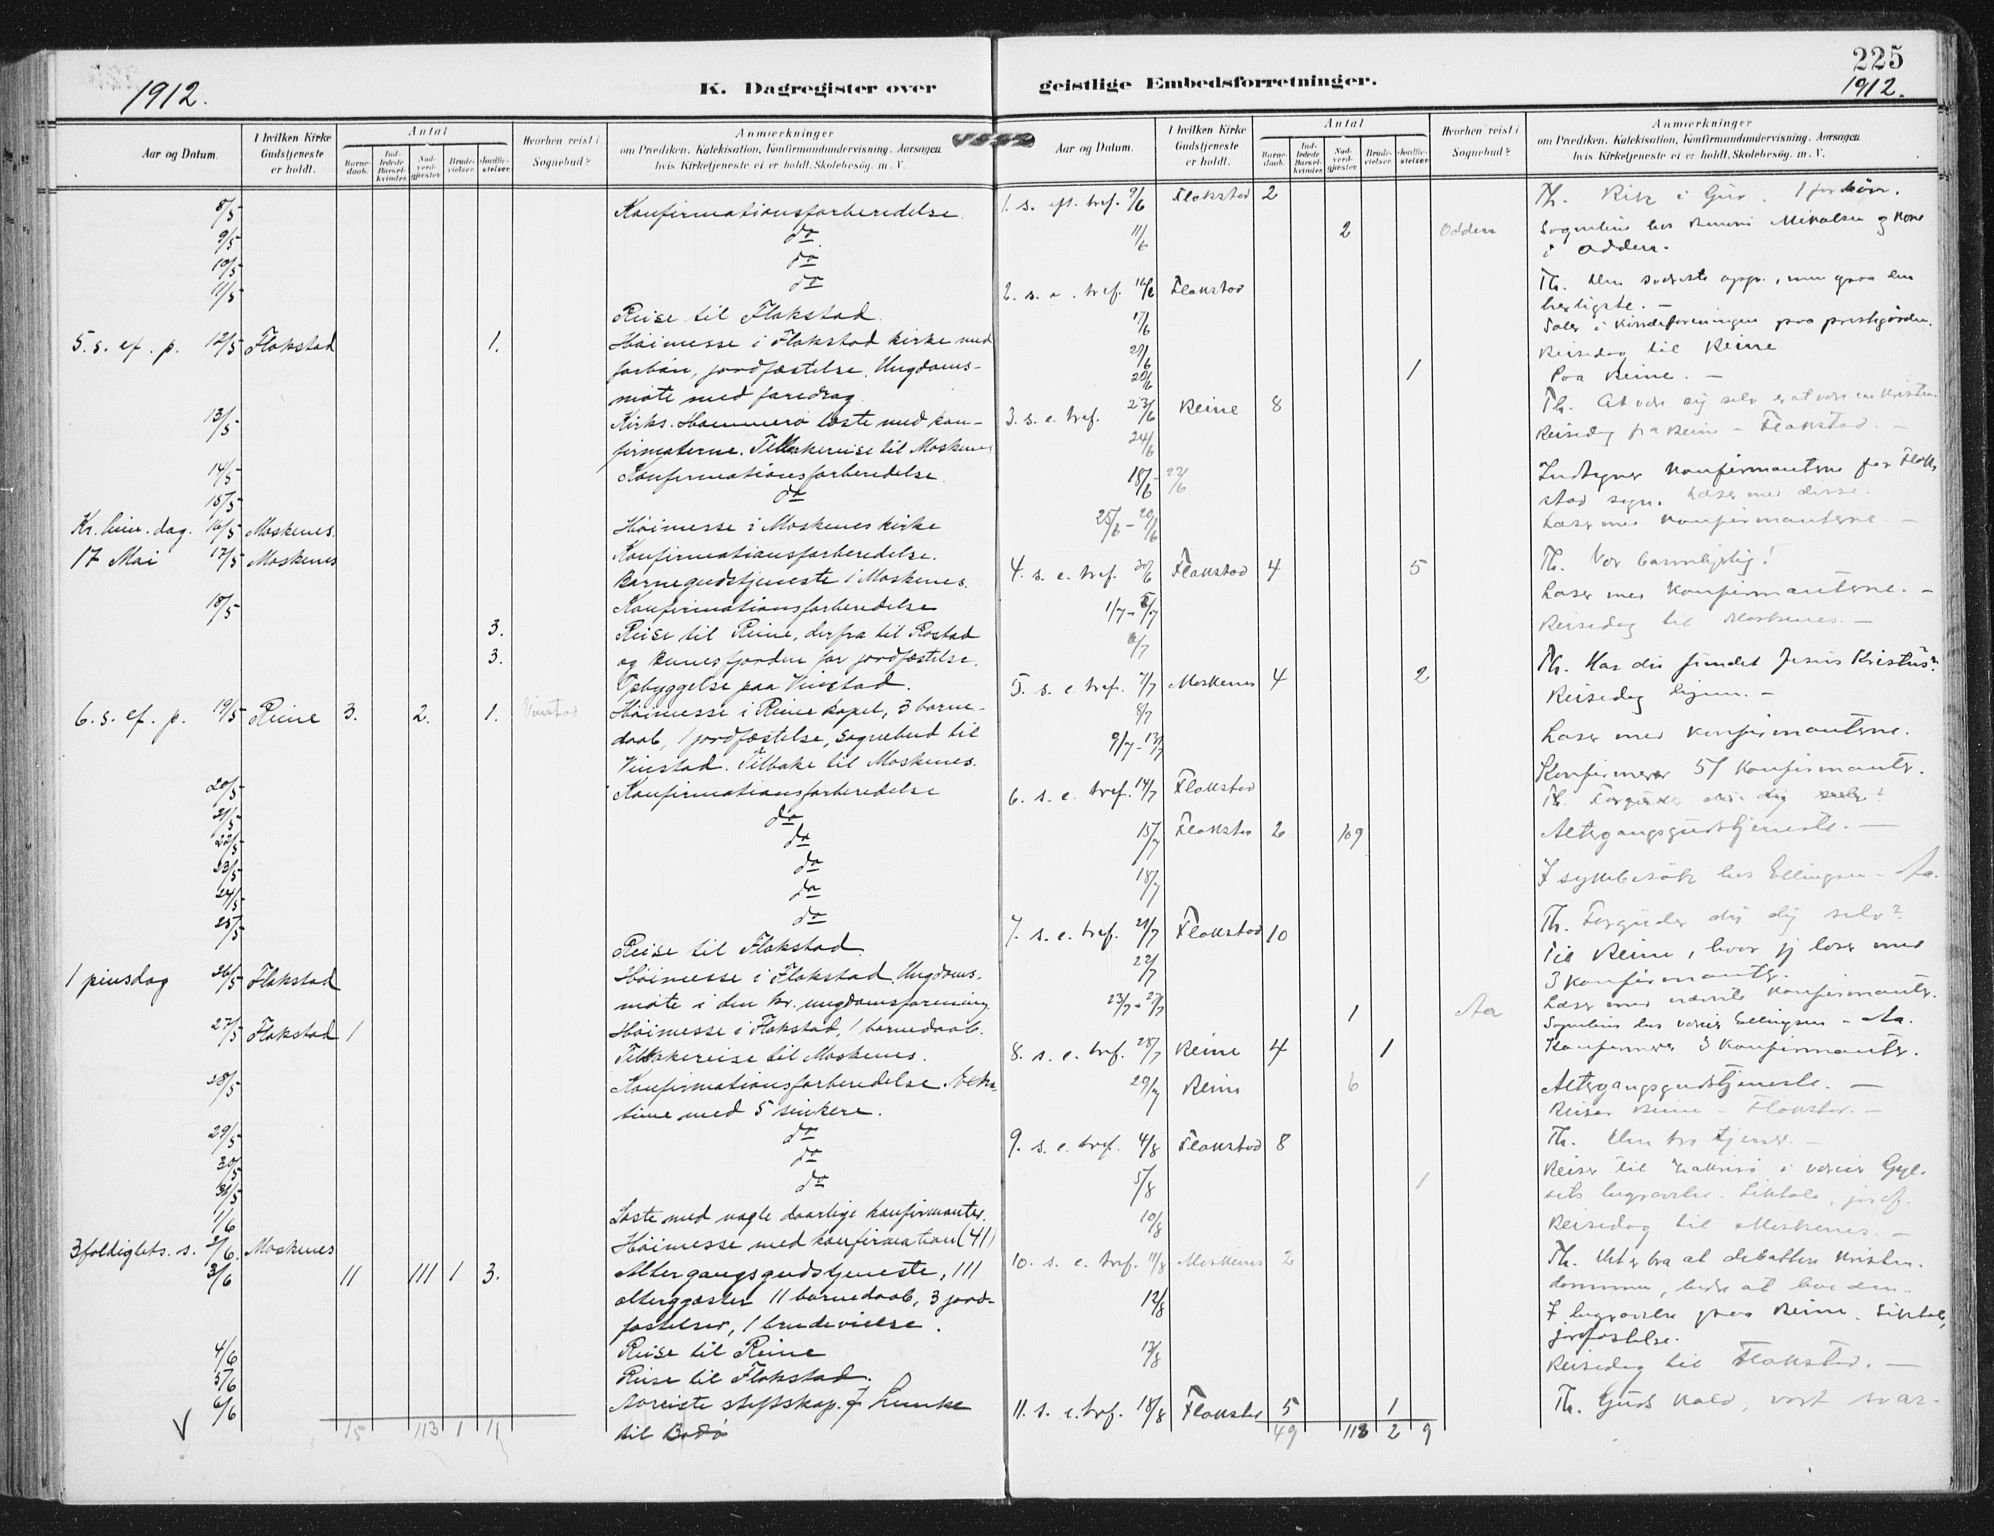 1912.
K. Dagregister over
Aar og Datum.
I hvilken Kirke Gudstjeneste er holdt.
Antal
Barnedaab.
Indledede Barselkvinder.
Nadverdgjester.
Brudevielser.
Jordfæstelser.
Hvorhen reist i Sognebud?
Anmærkninger
om Prædiken, Katekisation, Konfirmandundervisning, Aarsagen
hvis Kirketjeneste ei er holdt, Skolebesøg, m. V.
8/5 Konfirmationsforberedelse.
9/5 do
10/5 do
11/5 do
Reise til Flakstad.
5. s. ef. p. 12/5 Flakstad 1. Høimesse i Flakstad kirke med
forbøn, jordfæstelse. Ungdoms-
møte med foredrag.
13/5 Kirks. Hammerø læste med kon-
firmaterne. Tilbakereise til Moskenes
14/5 Konfirmationsforberedelse.
15/5 do
Kr. him. dag. 16/5 Moskenes. Høimesse i Moskenes kirke
17 Mai 17/5 Moskenes Konfirmationsforberedelse.
Barnegudstjeneste i Moskenes.
18/5 Konfirmationsforberedelse
3. Reise til Reine, derfra til Rostad
3. og Bunesfjorden for jordfæstelse.
Opbyggelse paa Vinstad.
6. s. ef. p. 19/5 Reine 3. 2. 1. Vinstad Høimesse i Reine kapel, 3 barne-
daab, 1 jordfæstelse, sognebud til
Vinstad. Tilbake til Moskenes.
20/5 Konfirmationsforberedelse
21/5 do
22/5 do
23/5 do
24/5 do
25/5 do
Reise til Flakstad.
1 pinsdag 26/5 Flakstad Høimesse i Flakstad. Ungdoms-
møte i den kr. ungdomsforening
27/5 Flakstad 1 Høimesse i Flakstad, 1 barnedaab.
Tilbakereise til Moskenes.
28/5 Konfirmationsforberedelse.
time med 5 sinkere.
29/5 do
30/5 do
31/5 do
1/6 Læste med nogle daarlige konfirmanter.
3foldighets. s. 2/6. Moskenes Høimesse med konfirmation (41)
3/6 11 111 1 3. Altergangsgudstjeneste, 111
altergjæster 11 barnedaab, 3 jord-
fæstelser, 1 brudevielse.
4/6 Reise til Reine
5/6 Reise til Flakstad.
6/6 Avreiste stiftskap. J. Lunke
til Bodø
15 113 1 11
225
1912.
geistlige Embedsforretninger.
Aar og Datum.
I hvilken Kirke Gudstjeneste er holdt.
Antal
Barnedaab.
Indledede Barselkvinder.
Nadverdgjester.
Brudevielser.
Jordfæstelser.
Hvorhen reist i Sognebud?
Anmærkninger
om Prædiken, Katekisation, Konfirmandundervisning, Aarsagen
hvis Kirketjeneste ei er holdt, Skolebesøg, m. V.
1. s. eft. tref. 9/6 Flakstad 2 Th. Rik i Gud.
11/6 2 Odden Sognebud hos Mikalsen og kone
i Odden.
2. s. e. tref. 16/6 Flakstad Th. Den sværeste opgv., men ogsaa den
herligste. —
17/6 Taler i Kvindeforeningen paa prestegården.
21/6 Reisedag til Reine
22/6 1 Paa Reine. —
3. s. e. tref. 23/6 Reine 8 Th. At være sig selv er at være en kristen.
24/6 Reisedag fra Reine - Flakstad. —
18/6 - 22/6 Indtegner konfirmanterne for Flak-
stad sogn. Læser med disse.
25/6 - 29/6 Læser med konfirmanterne. —
4. s. e. tref. 30/6 Flakstad 4 5 Th. Vor barmhjertig!
1/7 - 5/7 Læser med konfirmanterne. —
6/7 Reisedag til Moskenes. —
5. s. e. tref. 7/7 Moskenes 4 2 Th. Har du fundet Jesus Kristus?
8/7 Reisedag hjem. —
9/7 - 13/7 Læser med konfirmanterne.
6. s. e. tref. 14/7 Flakstad Konfirmerer 51 konfirmanter.
Th. Forguder du dig selv?
15/7 Flakstad 2 109 Altergangsgudstjeneste. —
18/7 I sykebesøk hos Ellingsen - Aa.
7. s. e. tref. 21/7 Flakstad 10 Th. Forguder du dig selv?
22/7 Til Reine, hvor jeg læser med
3 konfirmanter.
23/7 - 27/7 Læser med nævnte konfirmanter.
1 Aa Sognebud hos Ellingsen - Aa.
8. s. e. tref. 28/7 Reine 4 1 Konfirmerer 3 konfirmanter.
29/7 Reine 6 Altergangsgudstjeneste. —
Reiser Reine - Flakstad. —
9. s. e. tref. 4/8 Flakstad 8 Th. Den tro tjener. —
5/8 1 Reiser til Sakrisø i
begravelse. Liktale, jordf.
10/8 Reisedag til Moskenes. —
10. s. e. tref. 11/8 Moskenes 2 Th. Det er bra at debattere kristen-
dommen, bedre at leve den.
12/8 I begravelse paa Reine. Liktale,
jordfæstelse.
13/8 Reisedag til Flakstad. —
11. s. e. tref. 18/8 Flakstad 5 1 Th. Guds kald, vort svar-
49 118 2 9